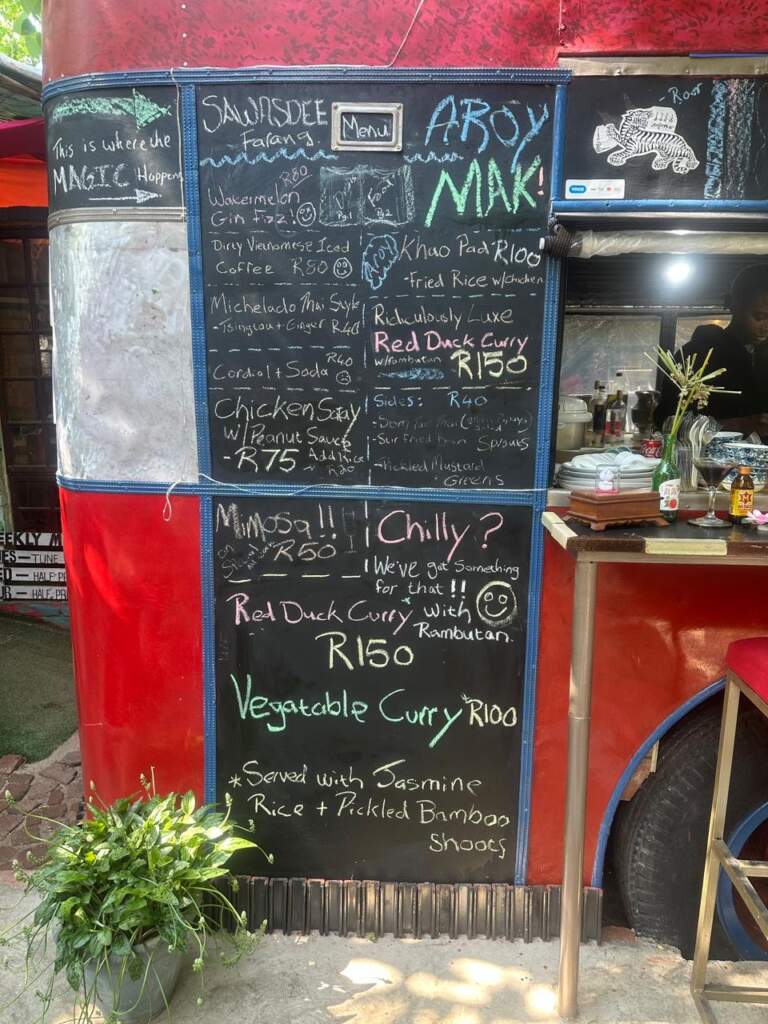 This is where the
MAGIC Happens
SAWASDEE
Farang
Menu
AROY
MAK!
Roar
Watermelon R80
Gin Fizz!
Dirty Vietnamese Iced
Coffee R50
Michelado Thai Style
- Tsingtau + Ginger R40
Cordial + Soda R40
Chicken Satay
w/ Peanut Sauce
- R75 Add Rice
R20
Pg.1
Pg.2
Aroy
Khao Pad R100
- Fried Rice w/ Chicken
Ridiculously Luxe
Red Duck Curry
w/ Rambutan R150
Sides: R40
- Som Tam Thai
- Stir Fried Bean Sprouts
- Pickled Mustard
Greens
Mimosa!!
R50
Chilly?
We've got Something
for that!!
Red Duck Curry with
Rambutan.
R150
Vegatable Curry *R100
*Served with Jasmine
Rice + Pickled Bamboo
Shoots
EEKLY M
ES - TUNE
D - HALF-PR
UR - HALF-PR